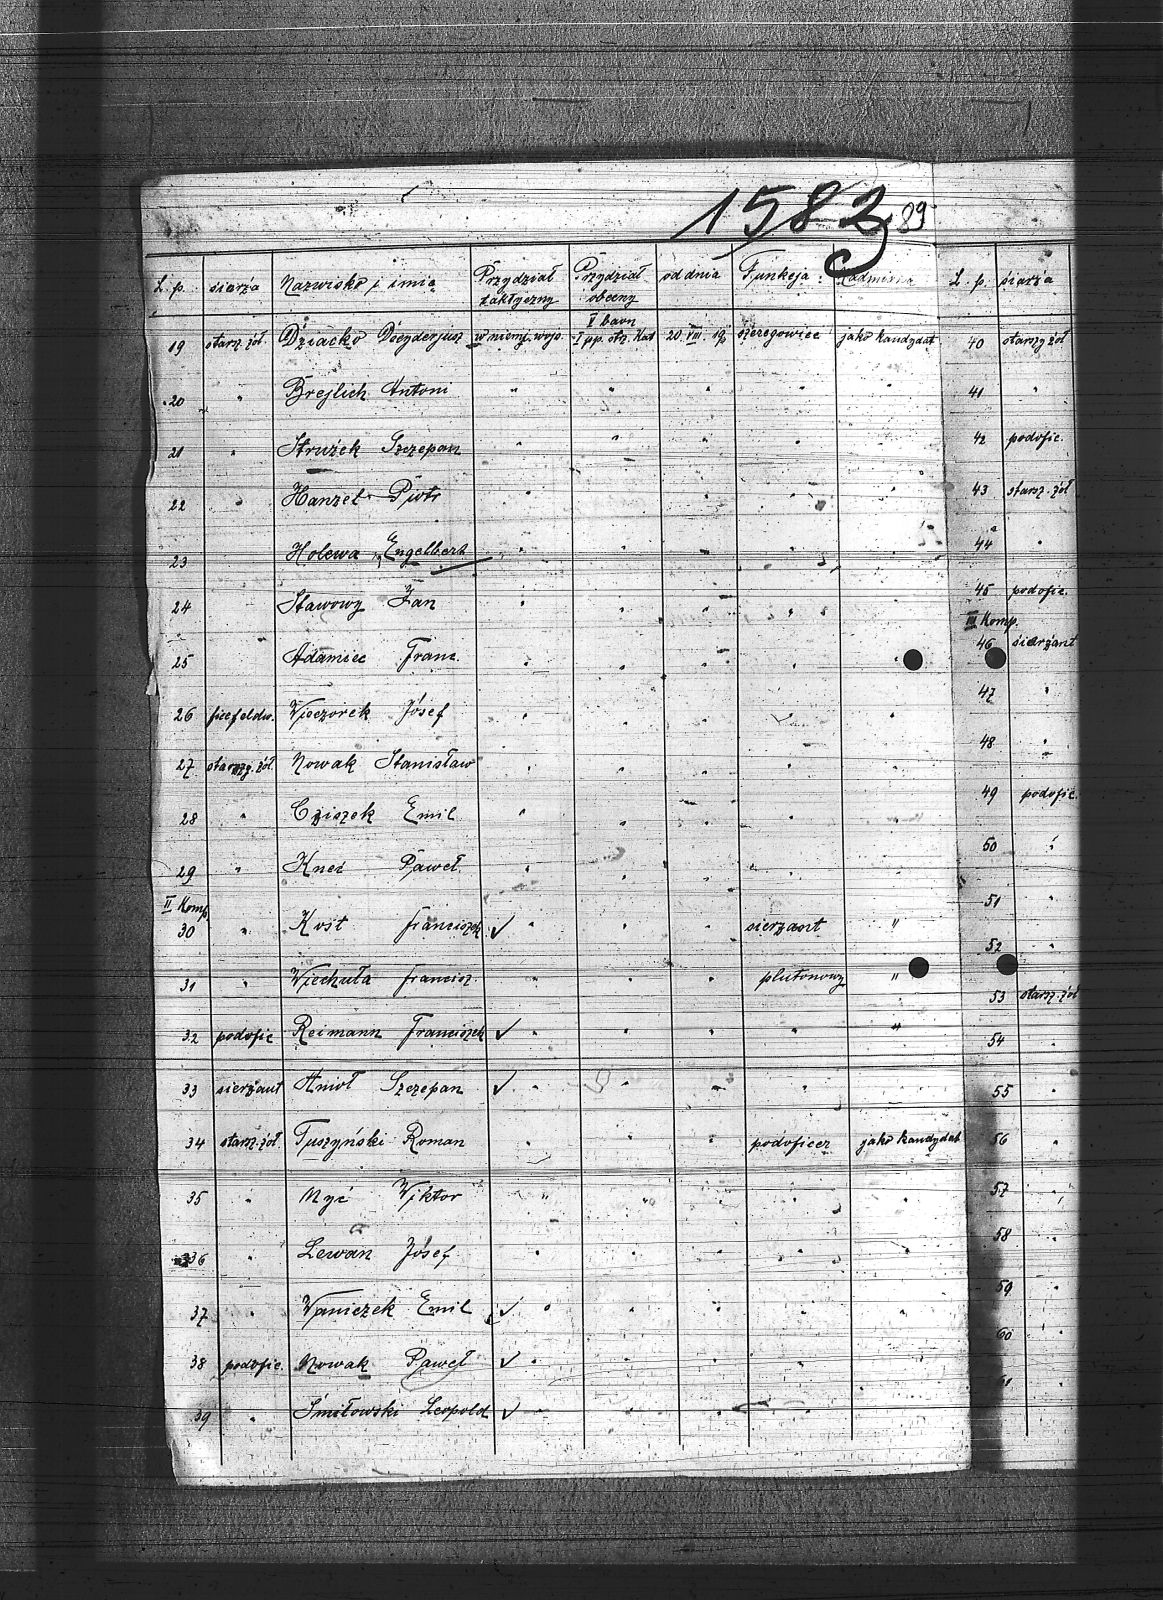 1583 89
L. p. siarża Nazwisko i imię Przydział taktyczny Przydział obecny od dnia Funkcja L. p. siarża
19 starsz. żoł. Dziacko w niemj. wojs. V baon I pp. strz. Kat 20 VIII 19 szeregowiec jako kandydat 40 starszy żoł
20 " Brejlich Antoni " " " " " 41 "
21 " Strużek Szczepan " " " " " 42 podofic.
22 " Hanzel Piotr " " " " " 43 starsz. żoł
23 Holewa Engelbert " " " " " 44 "
24 " Stawowy Jan " " " " " 45 podofic.
III Komp.
25 Adamiec Franc. " " " " " 46 sierżant
26 ficefeldw. Wieczorek Józef " " " " " 47 "
27 starszy. żoł. Nowak Stanisław " " " " 48 "
28 " Cziszek Emil " " " " " 49 podofic.
29 " Kneć Paweł " " " " " 50 "
II Komp
30 " Kost Franciszek ✓ " " " sierżant " 51 "
31 " Wiechuła Francisz. " " " plutonowy " 52 "
53 starsz. żoł
32 podofic Reimann Franciszek ✓ " " " " " 54 "
33 sierżant Anioł Szczepan ✓ " " " " " 55 "
34 starsz. żoł Tuszyński Roman " " " podoficer jako kandydat 56 "
35 " Nyć Wiktor " " " " " 57 "
36 " Lewan Józef " " " " " 58 "
37 " Waniczek Emil ✓ " " " " " 59 "
38 podofic. Nowak Paweł ✓ " " " " " 60 "
39 " Śmiłowski Leopold ✓ " " " " " 61 "